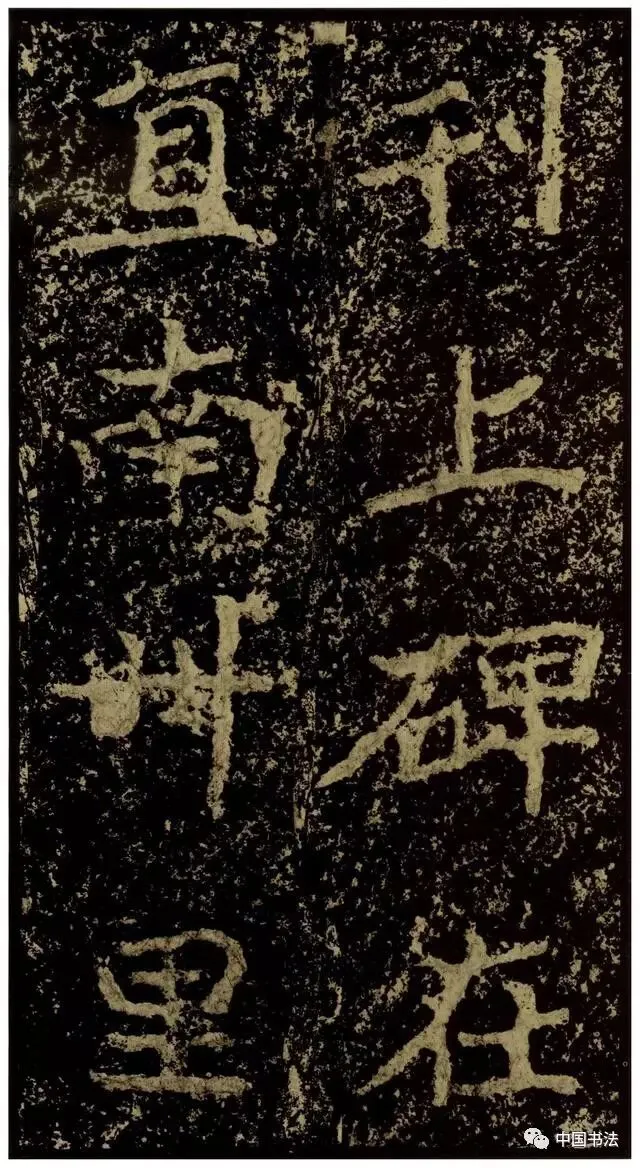 刊上碑在
直南卌里
中国书法